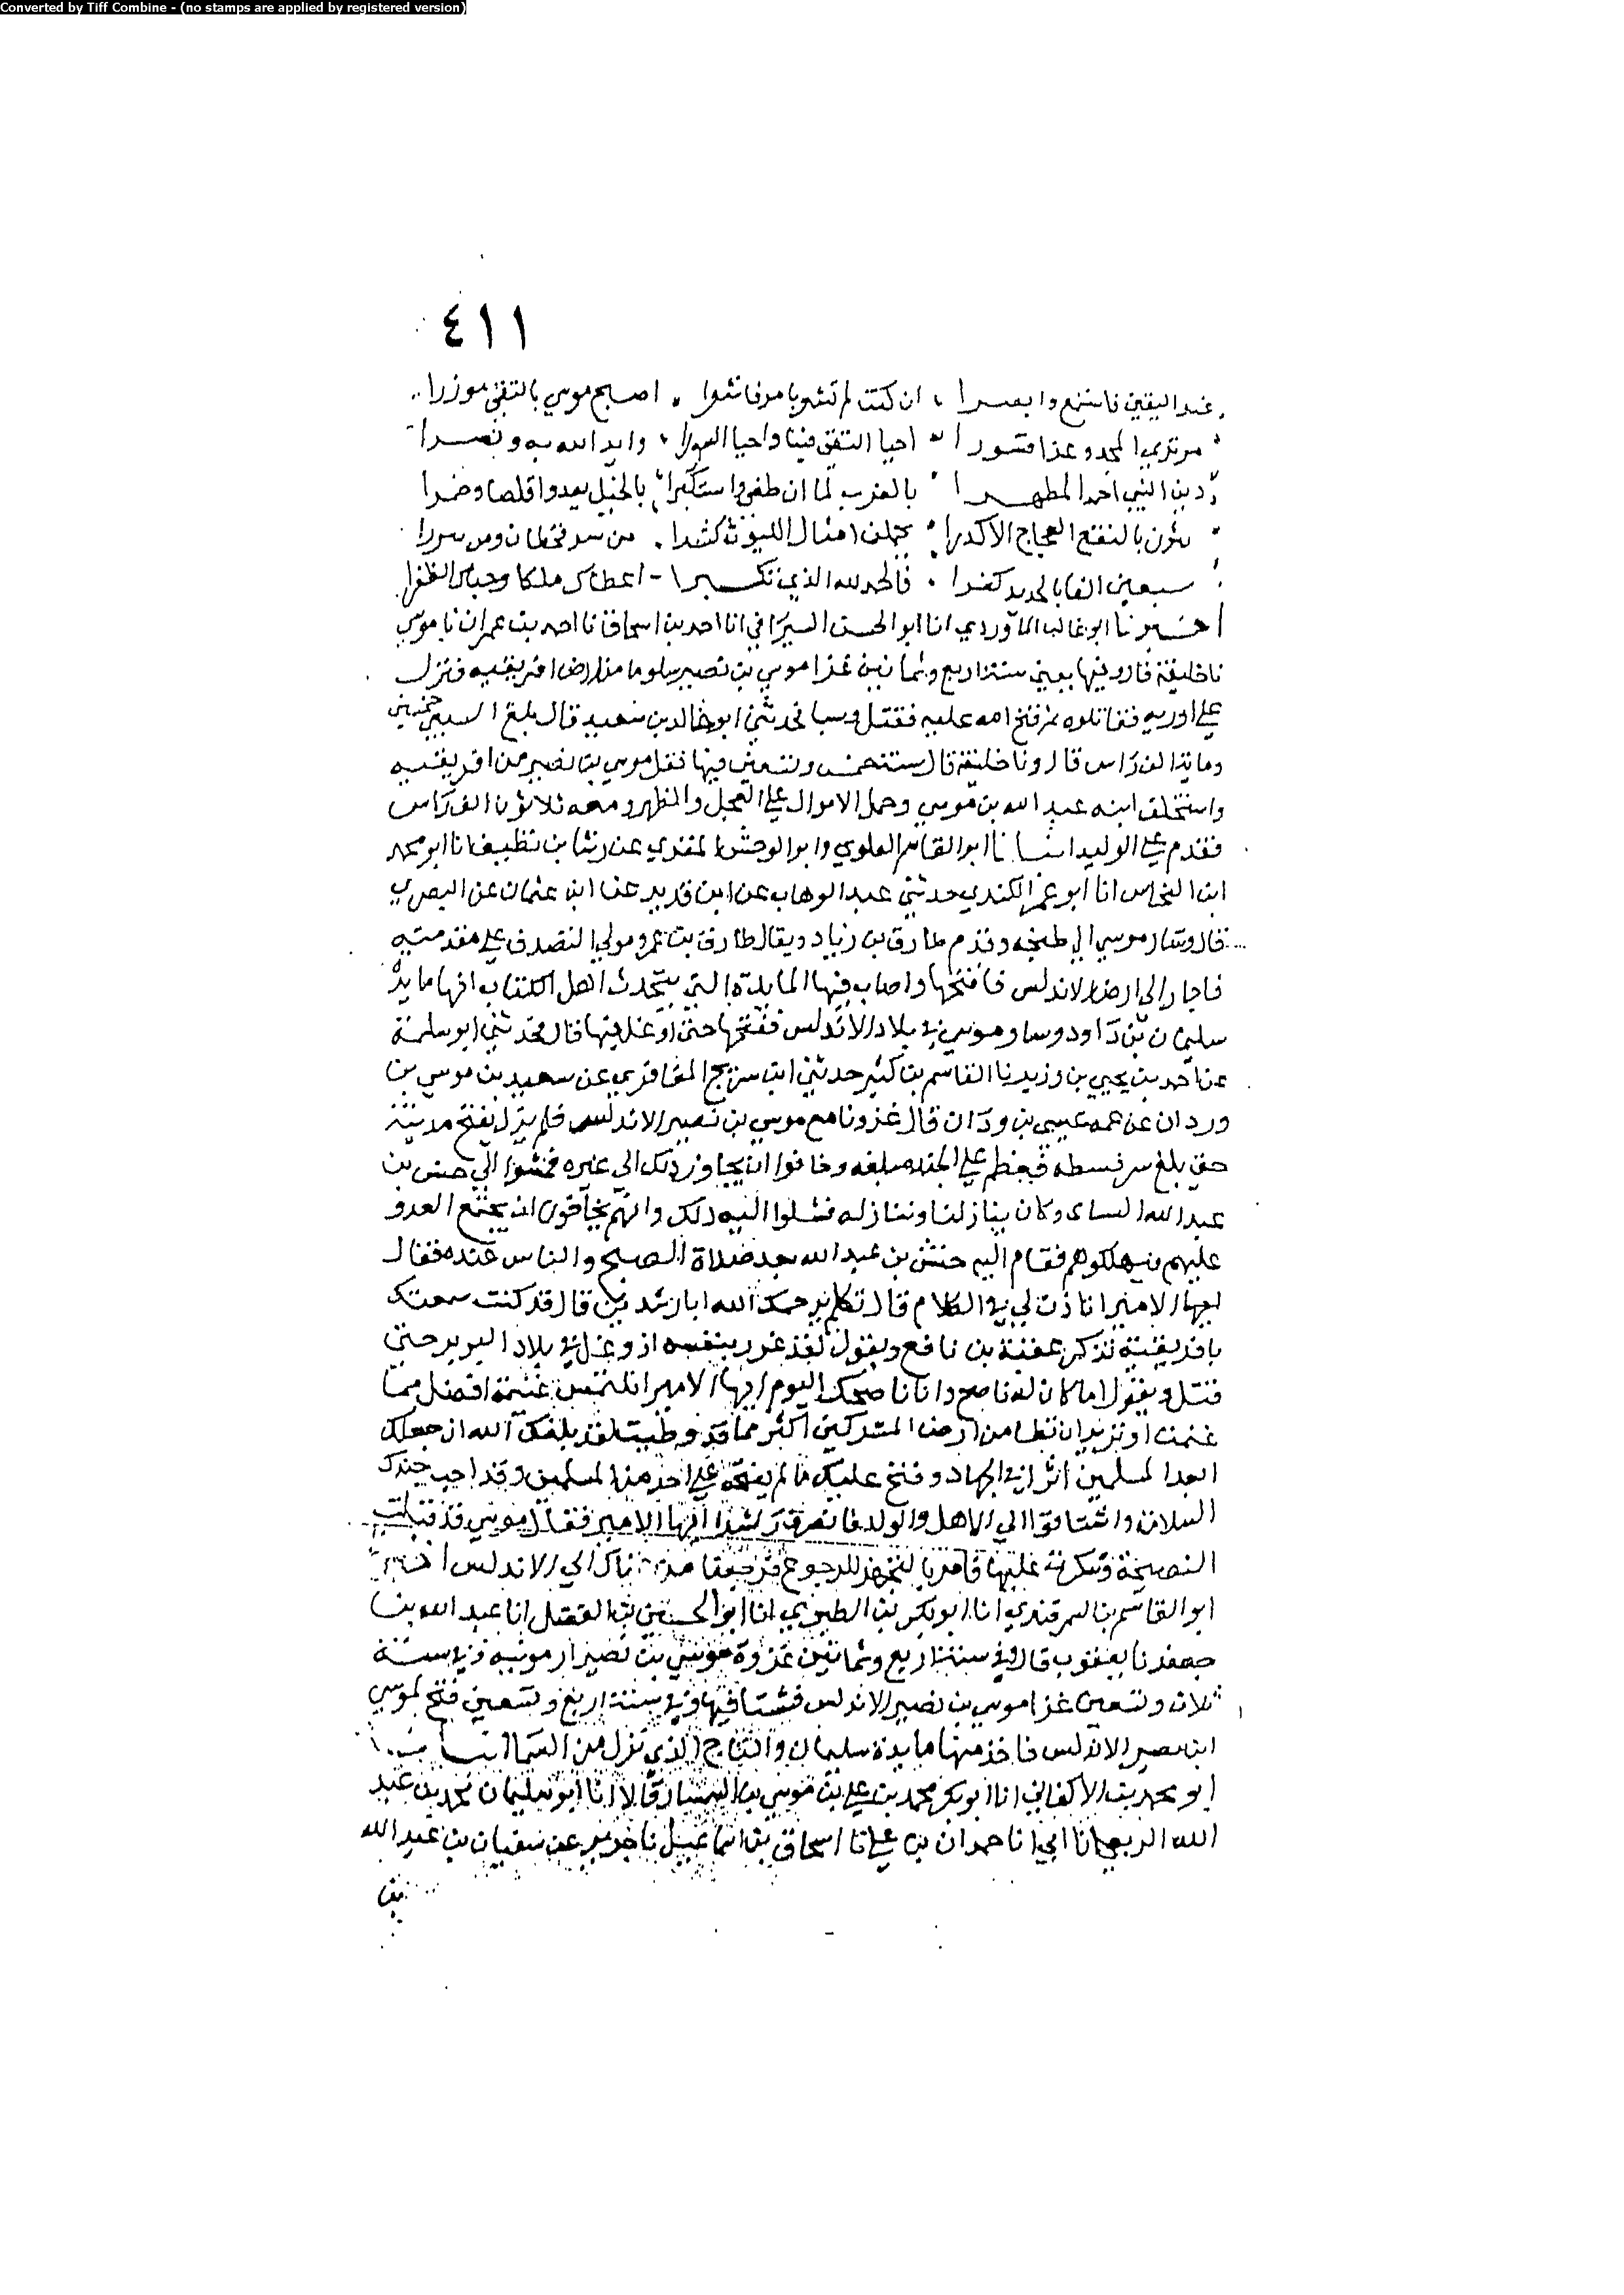 Converted by Tiff Combine - (no stamps are applied by registered version)
٤١١
عند اليقين فاستمع وابصرا ان كنت لم تشر بامر فاشوا اصبح موسي بالتقي موزرا
مرتدي المجد وعذا احيا التقي فينا واحيا وايد الله به ونصرا
دين النبي احمد المطهرا بالغرب لما ان طغي واستكبرا بالخيل يعدوا قلصا وضمرا
بالنقع العجاج الاكدرا يحملن امثال الليوث كشرا من قحطان ومن
سبعين الفا بالحديد كفرا فالحمد لله الذي اعطاك ملكا وحباك الظفرا
اخبرنا ابو غالب الماوردي انا ابو الحسن السيرافي انا احمد بن اسحاق نا احمد بن عمران نا موسي
نا خليفة قال وفيها يعني سنة اربع وثمانين غزا موسي بن نصير من ارض افريقيه فنزل
علي اوربه فقاتلوه ثم فتح الله عليه فقتل وسبا فحدثني ابو خالد بن سعيد قال بلغ السبي خمسين
وماية الف راس قال ونا خليفة قال سنة خمس وتسعين فيها نقل موسي بن نصير من افريقيه
واستخلف ابنه عبد الله بن موسي وحمل الاموال علي العجل والظهر ومعه ثلاثون الف راس
فقدم علي الوليد انبانا ابو القاسم العلوي وابو الوحش المقري عن رشا بن نظيف انا ابو محمد
ابن النحاس انا ابو عمر الكندي حدثني عبد الوهاب عن ابن قديد عن ابن عثمان عن البصري
قال وسار موسي الي طنجه وقدم طارق بن زياد ويقال طارق بن عمرو مولي الصدف علي مقدمته
فاجاز الي ارض الاندلس فافتتحها واصاب فيها المايدة التي يتحدث اهل الكتاب انها مايدة
سليمان بن داود وسار موسي في بلاد الاندلس ففتحها حتي اوغل فيها قال فحدثني ابو سلمة
عن احمد بن يحيي بن وزير نا القاسم بن كثير حدثني ابن سريج المعافري عن سعيد بن موسي بن
وردان عن عمه عيسي بن وردان قال غزونا مع موسي بن نصير الاندلس فلم يزل يفتح مدينة
حتي بلغ سرقسطه فعظم علي الجند مبلغه وخافوا ان يجاوز ذلك الي غيره فمشوا الي حنش بن
عبد الله السباي وكان ينازلنا وننازله اليه ذلك وانهم يخافون ان يجتمع العدو
عليهم فيهلكوهم فقام اليه حنش بن عبد الله بعد صلاة الصبح والناس عنده فقال
ايها الامير اتاذن لي في الكلام قال تكلم يرحمك الله ابا رشدين قال قد كنت سمعتك
بافريقية تذكر عقبة بن نافع ويقول لقد غرر بنفسه اذ وغل في بلاد البربر حتي
قتل ويقول اما كان له ناصح وانا ناصحك اليوم ايها الامير اتلتمس غنيمة افضل مما
غنمت او تريد ان تطا من ارض المشركين اكثر مما قد وطيت لقد بلغك الله ان جعلك
ابعد المسلمين اثرا في الجهاد وفتح عليك ما لم يفتحه علي احد من المسلمين وقد احب جندك
السلامة واشتاقوا الي الاهل والولد فانصرف رشدا ايها الامير فقال موسي قد قبلت
النصيحة وشكرت عليها فامرنا للرجوع فرجعنا الي الاندلس
ابو القاسم بن السمرقندي انا ابو بكر بن الطبري انا ابو الحسين بن الفضل انا عبد الله بن
جعفر نا يعقوب قال وفي سنة اربع وثمانين غزوة موسي بن نصير ارمونيه وفي سنة
ثلاث وتسعين غزا موسي بن نصير الاندلس فشتا فيها وفي سنة اربع وتسعين فتح لموسي
ابن نصير الاندلس فاخذ منها مايدة سليمان والتاج الذي نزل من السما انبانا
ابو محمد بن الاكفاني انا ابو بكر محمد بن علي بن موسي بن قالا انا ابو سليمان محمد بن عبد
الله الربعي انا ابي انا حمدان بن علي نا اسحاق بن اسماعيل نا جرير عن سفيان بن عبد الله